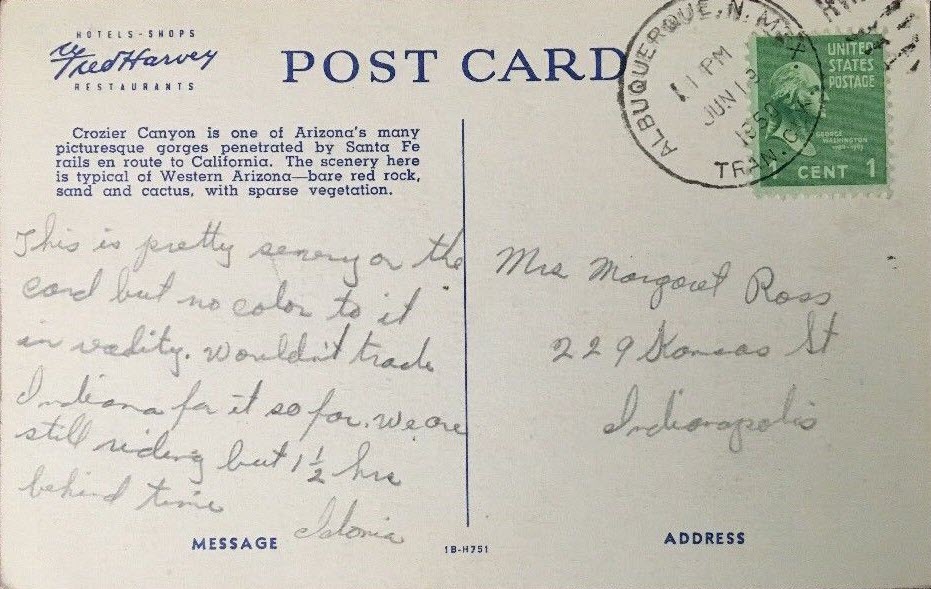 HOTELS - SHOPS
Fred Harvey
RESTAURANTS
POST CARD
ALBUQUERQUE, N. MEX.
PM
JUN 1
TRAN. CLK.
UNITED
STATES
POSTAGE
GEORGE
WASHINGTON
CENT 1
Crozier Canyon is one of Arizona's many
picturesque gorges penetrated by Santa Fe
rails en route to California. The scenery here
is typical of Western Arizona—bare red rock,
sand and cactus, with sparse vegetation.
This is pretty senery on the
card but no color to it
in reality. Wouldn't trade
Indiana for it so far. We are
still riding but 1 1/2 hrs
behind time
Mrs Margaret Ross
229 Kansas St
Indianapolis
MESSAGE
1B-H751
ADDRESS